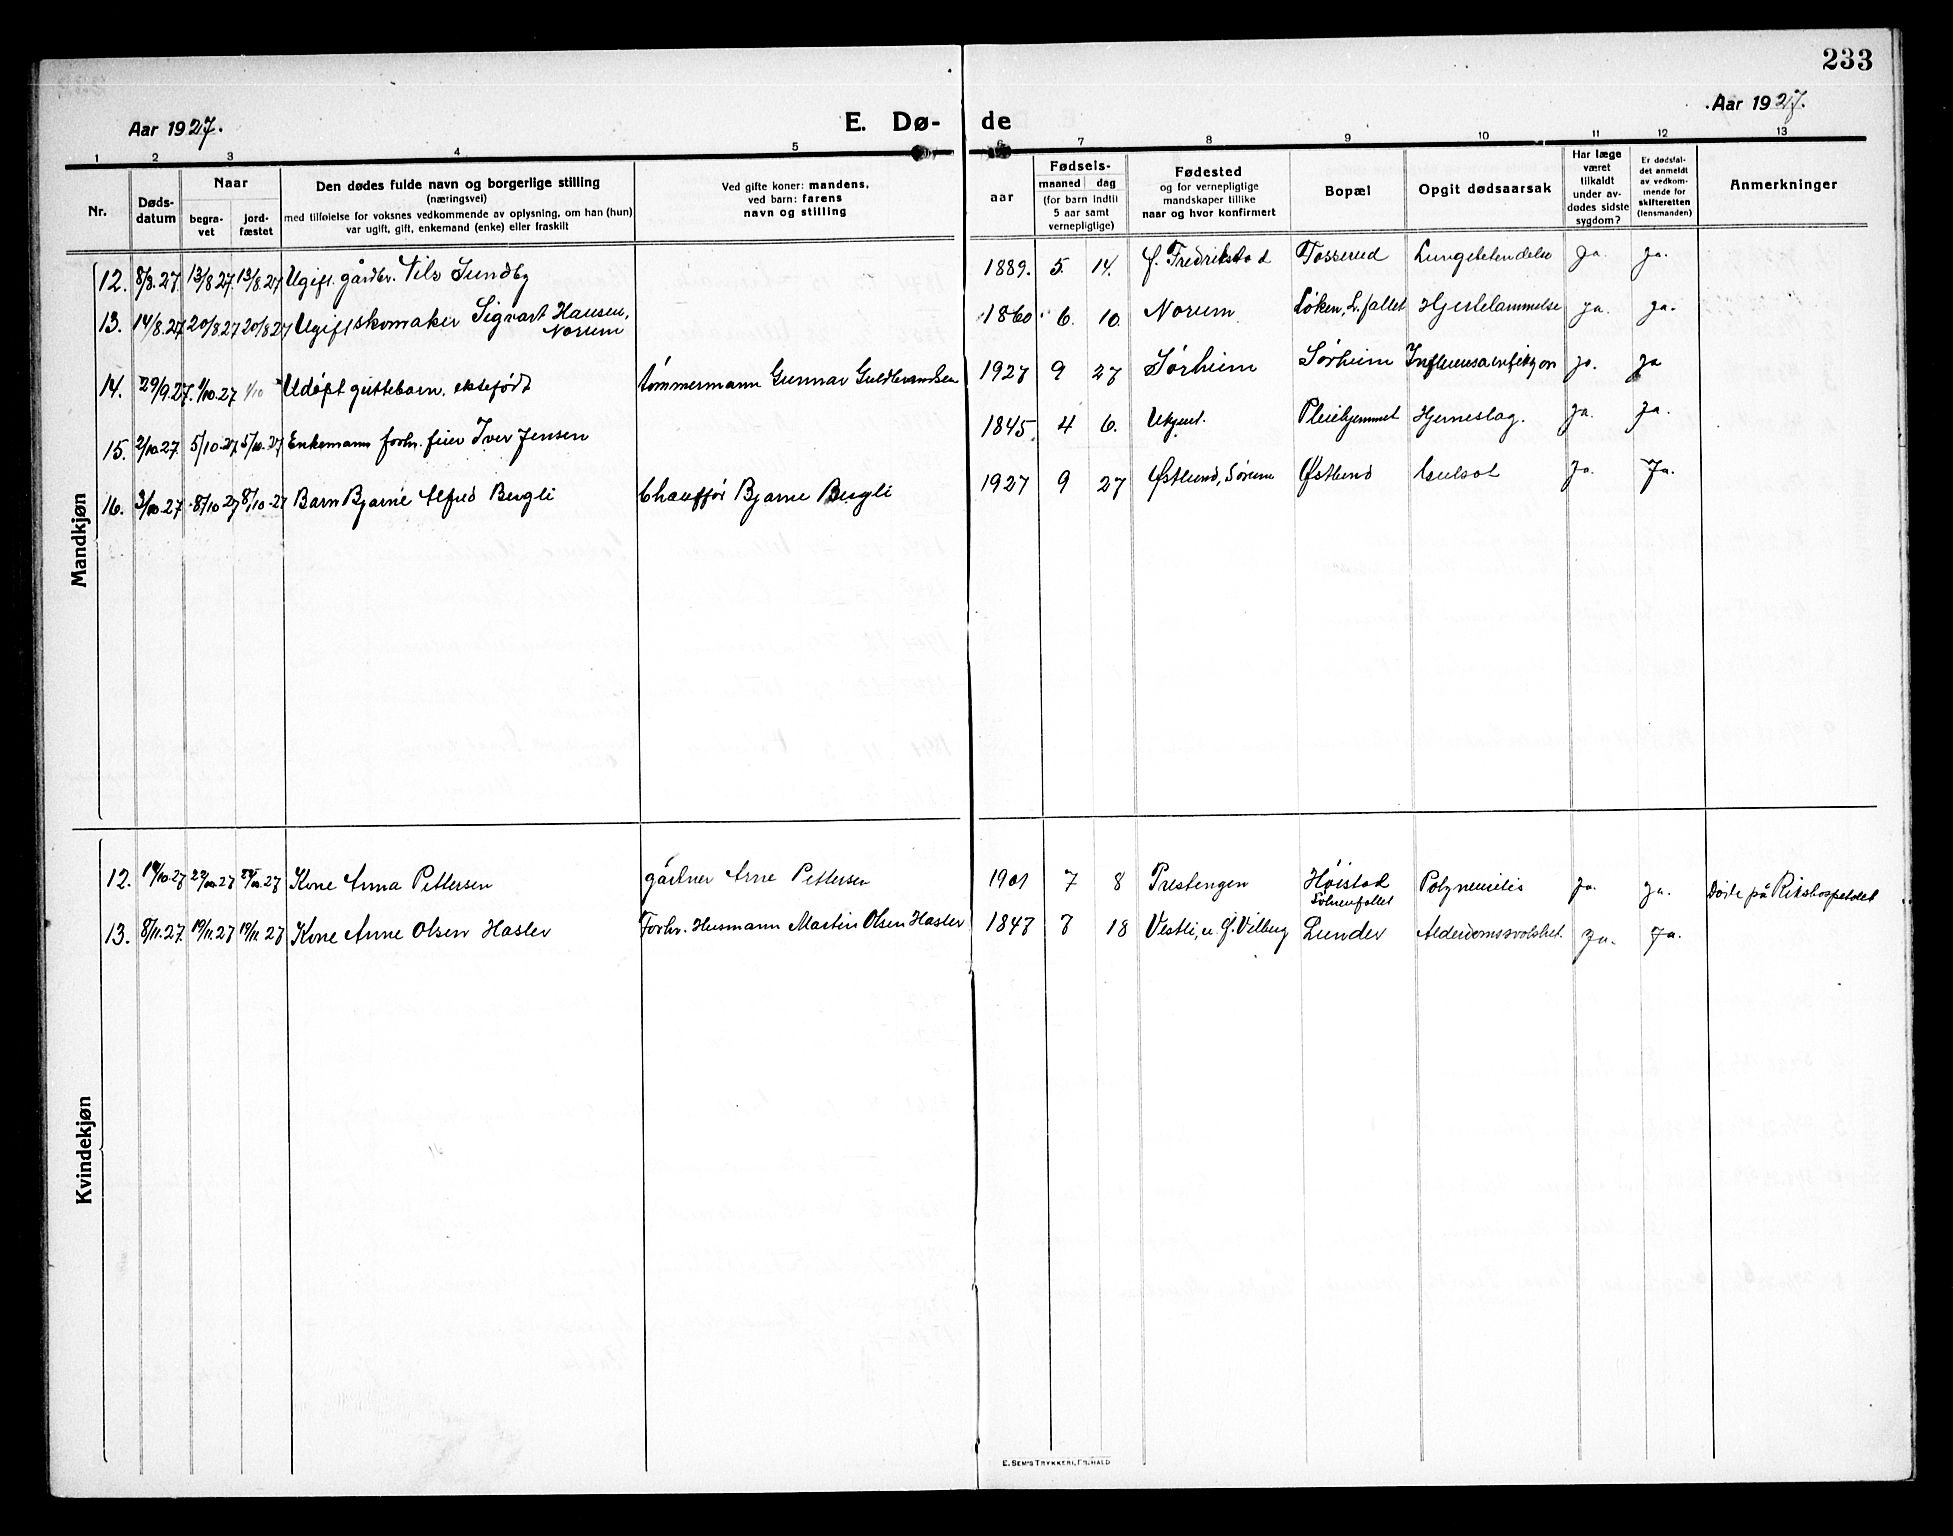 233
Aar 1927.
E. Dø- de
Aar 1927.
1 2 3 4 5 6 7 8 9 10 11 12 13
Nr.
Døds-
datum
Naar
begra-
vet
jord-
fæstet
Den dødes fulde navn og borgerlige stilling
(næringsvei)
med tilføielse for voksnes vedkommende av oplysning, om han (hun)
var ugift, gift, enkemand (enke) eller fraskilt
Ved gifte koner: mandens,
ved barn: farens
navn og stilling
aar
Fødsels-
maaned dag
(for barn indtil
5 aar samt
vernepligtige)
Fødested
og for vernepligtige
mandskaper tillike
naar og hvor konfirmert
Bopæl
Opgit dødsaarsak
Har læge
været
tilkaldt
under av-
dødes sidste
sygdom?
Er dødsfal-
det anmeldt
av vedkom-
mende for
skifteretten
(lensmanden)
Anmerkninger
Mandkjøn
12. 8/8.27. 13/8 27. 13/8.27 Ugift gårdbr. Nils Sundby 1889. 5. 14. f. Fredrikstad Tosserud Lungebetendelse ja. ja.
13. 14/8.27 20/8 27 20/8 27 Ugift skomaker Sigvart Hansen, 1860 6. 10. Norum Løken, S. fallet Hjertelammelse ja. ja.
Norum
14. 29/9.27. 1/10.27 1/10 Udøpt guttebarn, ektefødt tømmermann Gunnar Guldbrandsen 1927 9 27 Sørheim Sørheim ja. ja
15. 2/10.27. 5/10.27 5/10.27 Enkemann forhv. feier Iver Jensen 1845. 4 6. Ukjent. Pleiehjemmet Hjerneslag. ja. ja.
16. 3/10.27 8/10 27 8/10.27 Barn Bjarne Alfred Bergli Chauffør Bjarne Bergli 1927 9 27 Østlund, Sørum Østlund Gulsot Ja. Ja.
Kvindekjøn
12. Kone Anna Pettersen gårtner Arne Pettersen 1901 7 8 Prestengen Høistad Polyneuritis ja. ja. Døde på Rikshospitalet
Solumfallet
13. 8/11.27. 19/11 27 19/11 27 Kone Anne Olsen Hasler Forhv. Husmann Martin Olsen Hasler 1847 7 18 Vestli, u. G. Vilberg Lunder Alderdomssvakhet. Ja. Ja.
E. SEM'S TRYKKERI, FR.HALD